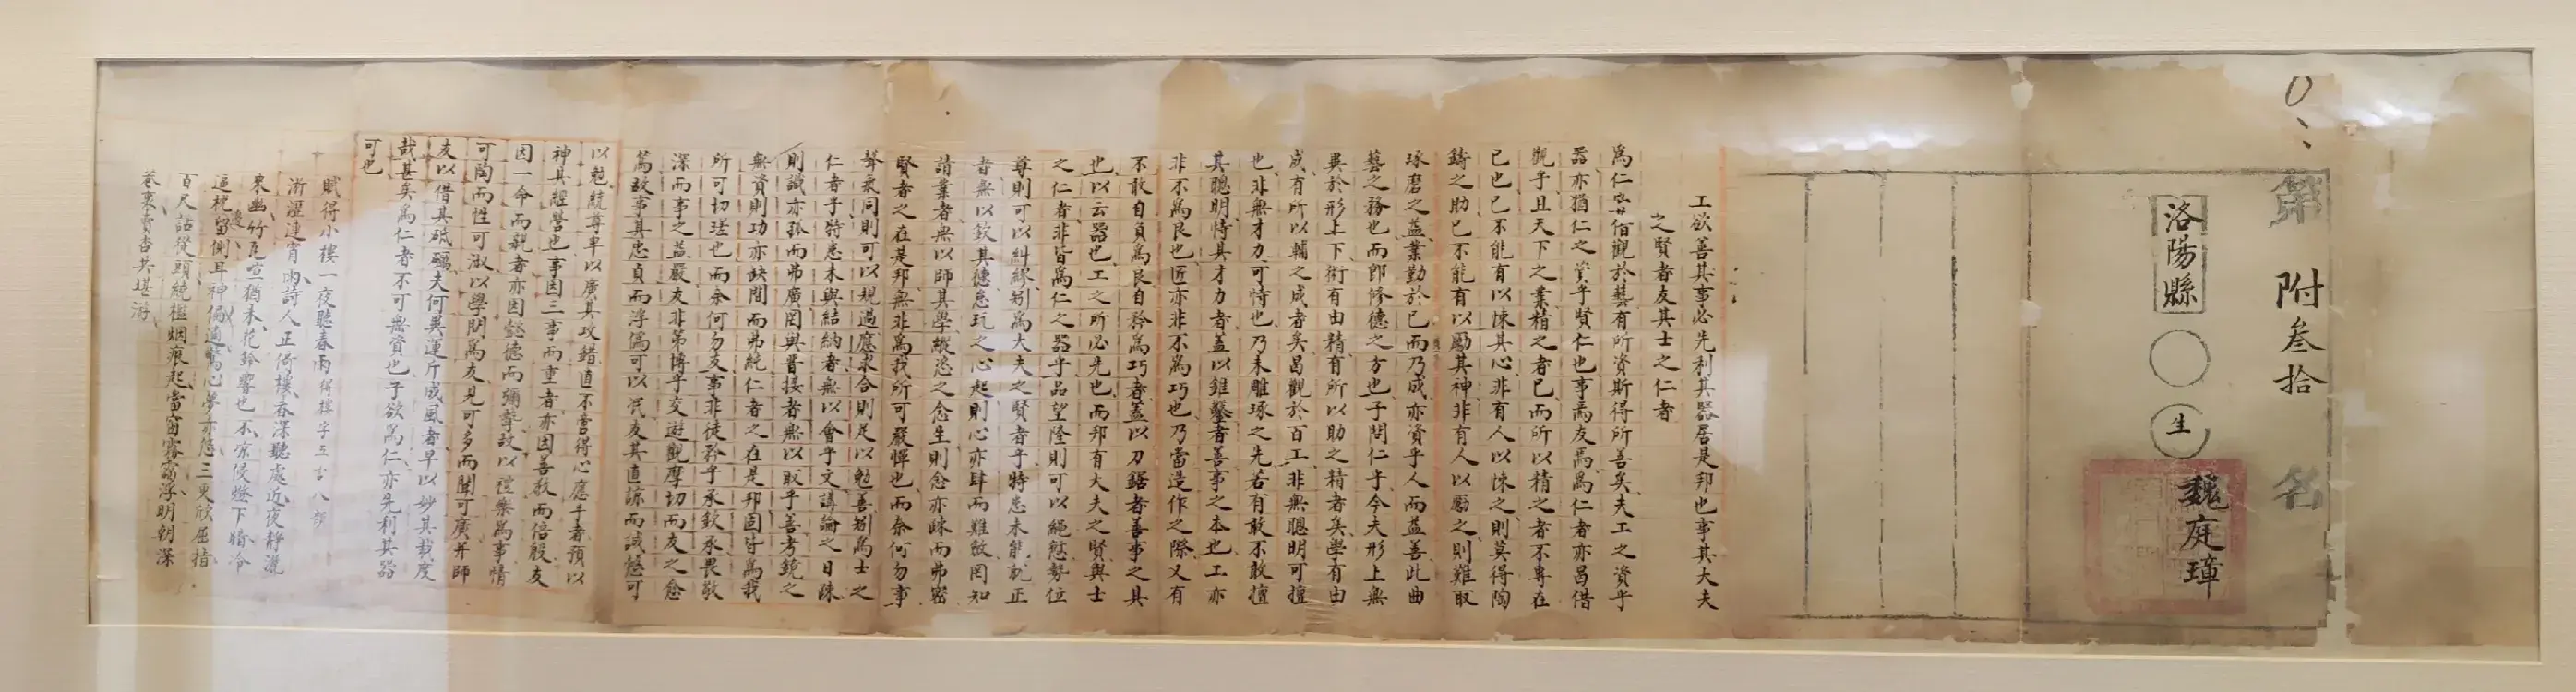 第附叁拾名
洛陽縣
生
魏庭璋
工欲善其事必先利其器居是邦也事其大夫
之賢者友其士之仁者
觀於藝有所資斯得所善矣夫工之資乎
器亦猶仁之資乎賢仁也事焉友焉為仁者亦曷借
觀乎且天下之業精之者已而所以精之者不專在
已也已不能有以悚其心非有人以悚之則莫得陶
鑄之助已不能有以勵其神非有人以勵之則難取
琢磨之益業勤於已而乃成亦資乎人而益善此曲
藝之務也而即修德之方也子問仁乎今夫形上無
異於形上下術有由精有所以助之精者矣學有由
成有所以輔之成者矣曷觀於百工非無聰明可擅
也非無才力可恃也乃未雕琢之先若有敢不敢擅
其聰明恃其才力者蓋以錐鑿者善事之本也工亦
非不為良也匠亦非不為巧也乃當造作之際又有
不敢自負為良自矜為巧者蓋以刀鋸者善事之具
也以云器也工之所必先也而邦有大夫之賢與士
之仁者非皆為仁之器乎品望隆則可以繩愆勢位
尊則可以糾繆矧為大夫之賢者乎特患未能就正
者無以欽其德怠玩之心起則心亦肆而難斂罔知
請業者無以師其學縱恣之念生則念亦疎而弗密
賢者之在是邦無非為我所可嚴憚也而奈何勿事
聲氣同則可以規過應求合則足以勉善矧為士之
仁者乎特患未與結納者無以會乎文講論之日疎
則識亦孤而弗廣罔與晋接者無以取乎善考鏡之
無資則功亦缺間而弗純仁者之在是邦固皆為我
所可切磋也而奈何勿友事非徒矜乎承欽承畏敬
深而事之益嚴友非第博乎交遊觀摩切而友之愈
篤故事其忠貞而浮偽可以 友其直諒而 愆可
以勉統尊卑以廣其攻錯直不啻得心應手者預以
神其經營也事因三事而重者亦因善教而倍殷友
因一命而親者亦因懿德而彌摯故以禮樂為事情
可陶而性可淑以學問為友見可多而聞可廣并師
友以借其砥礪夫何異運斤成風者早以妙其裁度
哉甚矣為仁者不可無資也子欲為仁亦先利其器
可也
賦得小樓一夜聽春雨得樓字五言八韻
淅瀝連宵雨詩人正倚樓春深聽處近夜靜滴
來幽竹瓦喧猶未花鈴響也不凉侵燈下牖冷
逼枕留側耳神偏適驚心夢亦悠三更欣屈指
百尺話從頭繞檻烟痕起當窗霧靄浮明朝深
巷裏賣杏共堪